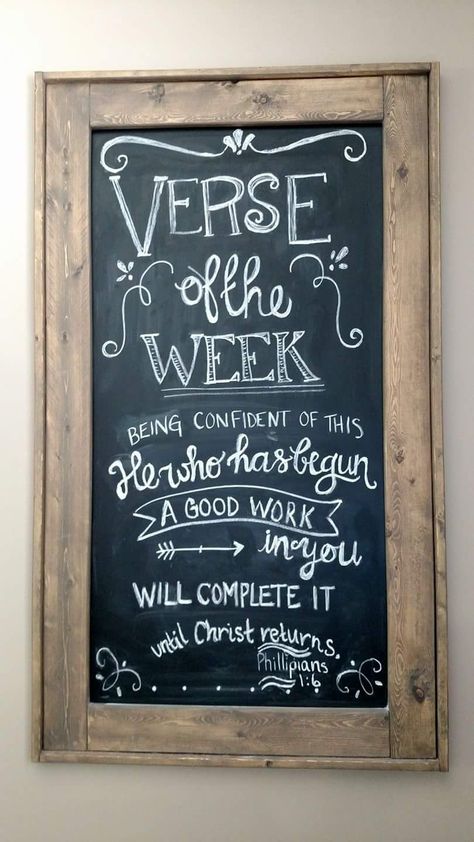 VERSE
of the
WEEK
BEING CONFIDENT OF THIS
He who has begun
A GOOD WORK
in you
WILL COMPLETE IT
until Christ returns.
Phillipians
1:6